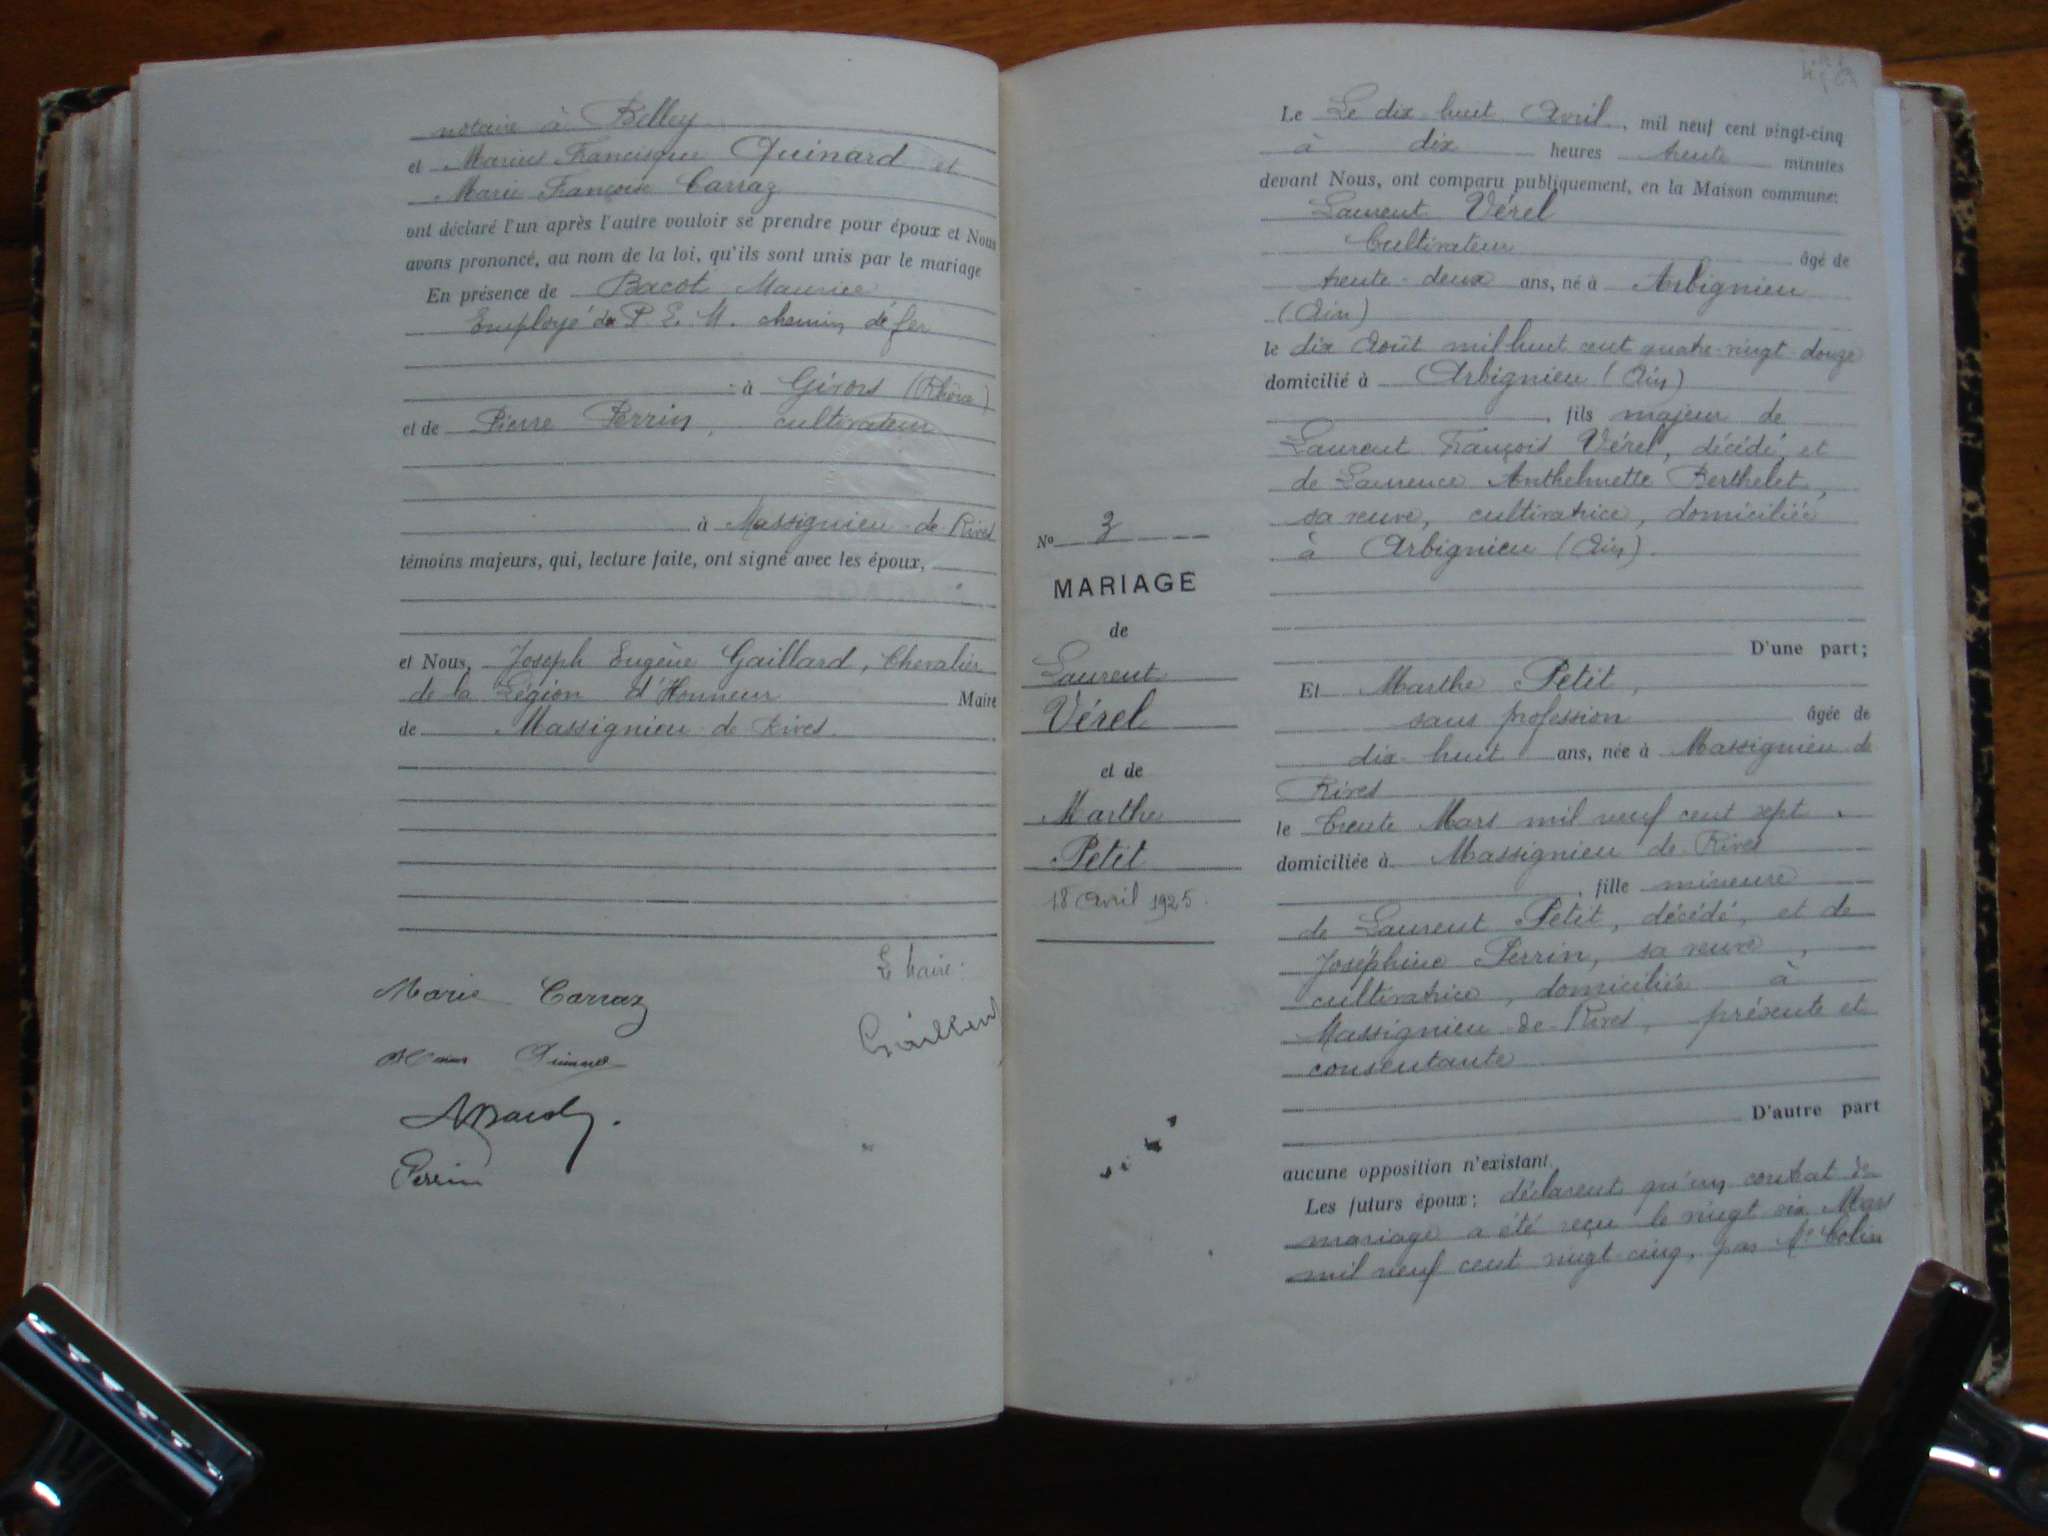 notaire à Belley
et Marius Francisque Quinard et
Marie Françoise Carraz
ont déclaré l'un après l'autre vouloir se prendre pour époux et Nous
avons prononcé, au nom de la loi, qu'ils sont unis par le mariage
En présence de Bacot Maurice
Employé de P. L. M. chemin de fer
à Givors (Rhône)
et de Pierre Perrin, cultivateur
à Massignieu-de-Rives
témoins majeurs, qui, lecture faite, ont signé avec les époux,
et Nous, Joseph Eugène Gaillard, Chevalier
de la Légion d'Honneur Maire
de Massignieu-de-Rives.
Le Maire:
Marie Carraz
Gaillard
Perrin
Le Le dix-huit Avril, mil neuf cent vingt-cinq
à dix heures trente minutes
devant Nous, ont comparu publiquement, en la Maison commune:
Laurent Vérel
Cultivateur âgé de
trente-deux ans, né à Arbignieu
(Ain)
le dix Août mil huit cent quatre-vingt-douze
domicilié à Arbignieu (Ain)
fils majeur de
Laurent François Vérel, décédé, et
de Laurence Anthelmette Berthelet,
sa veuve, cultivatrice, domiciliée
à Arbignieu (Ain).
D'une part;
No 3
MARIAGE
de
Laurent
Vérel
et de
Marthe
Petit
18 Avril 1925.
Et Marthe Petit,
sans profession âgée de
dix-huit ans, née à Massignieu-de
Rives
le trente Mars mil neuf cent sept.
domiciliée à Massignieu de Rives
, fille mineure
de Laurent Petit, décédé, et de
Joséphine Perrin, sa veuve,
cultivatrice, domiciliée à
Massignieu-de-Rives, présente et
consentante
D'autre part
aucune opposition n'existant.
Les futurs époux; déclarent qu'un contrat de
mariage a été reçu le vingt six Mars
mil neuf cent vingt-cinq, par Me Colin